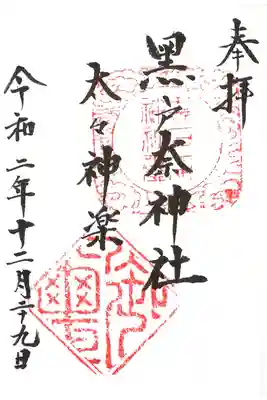 奉拝
黑戸奈神社
太々神楽
令和二年十二月二十九日